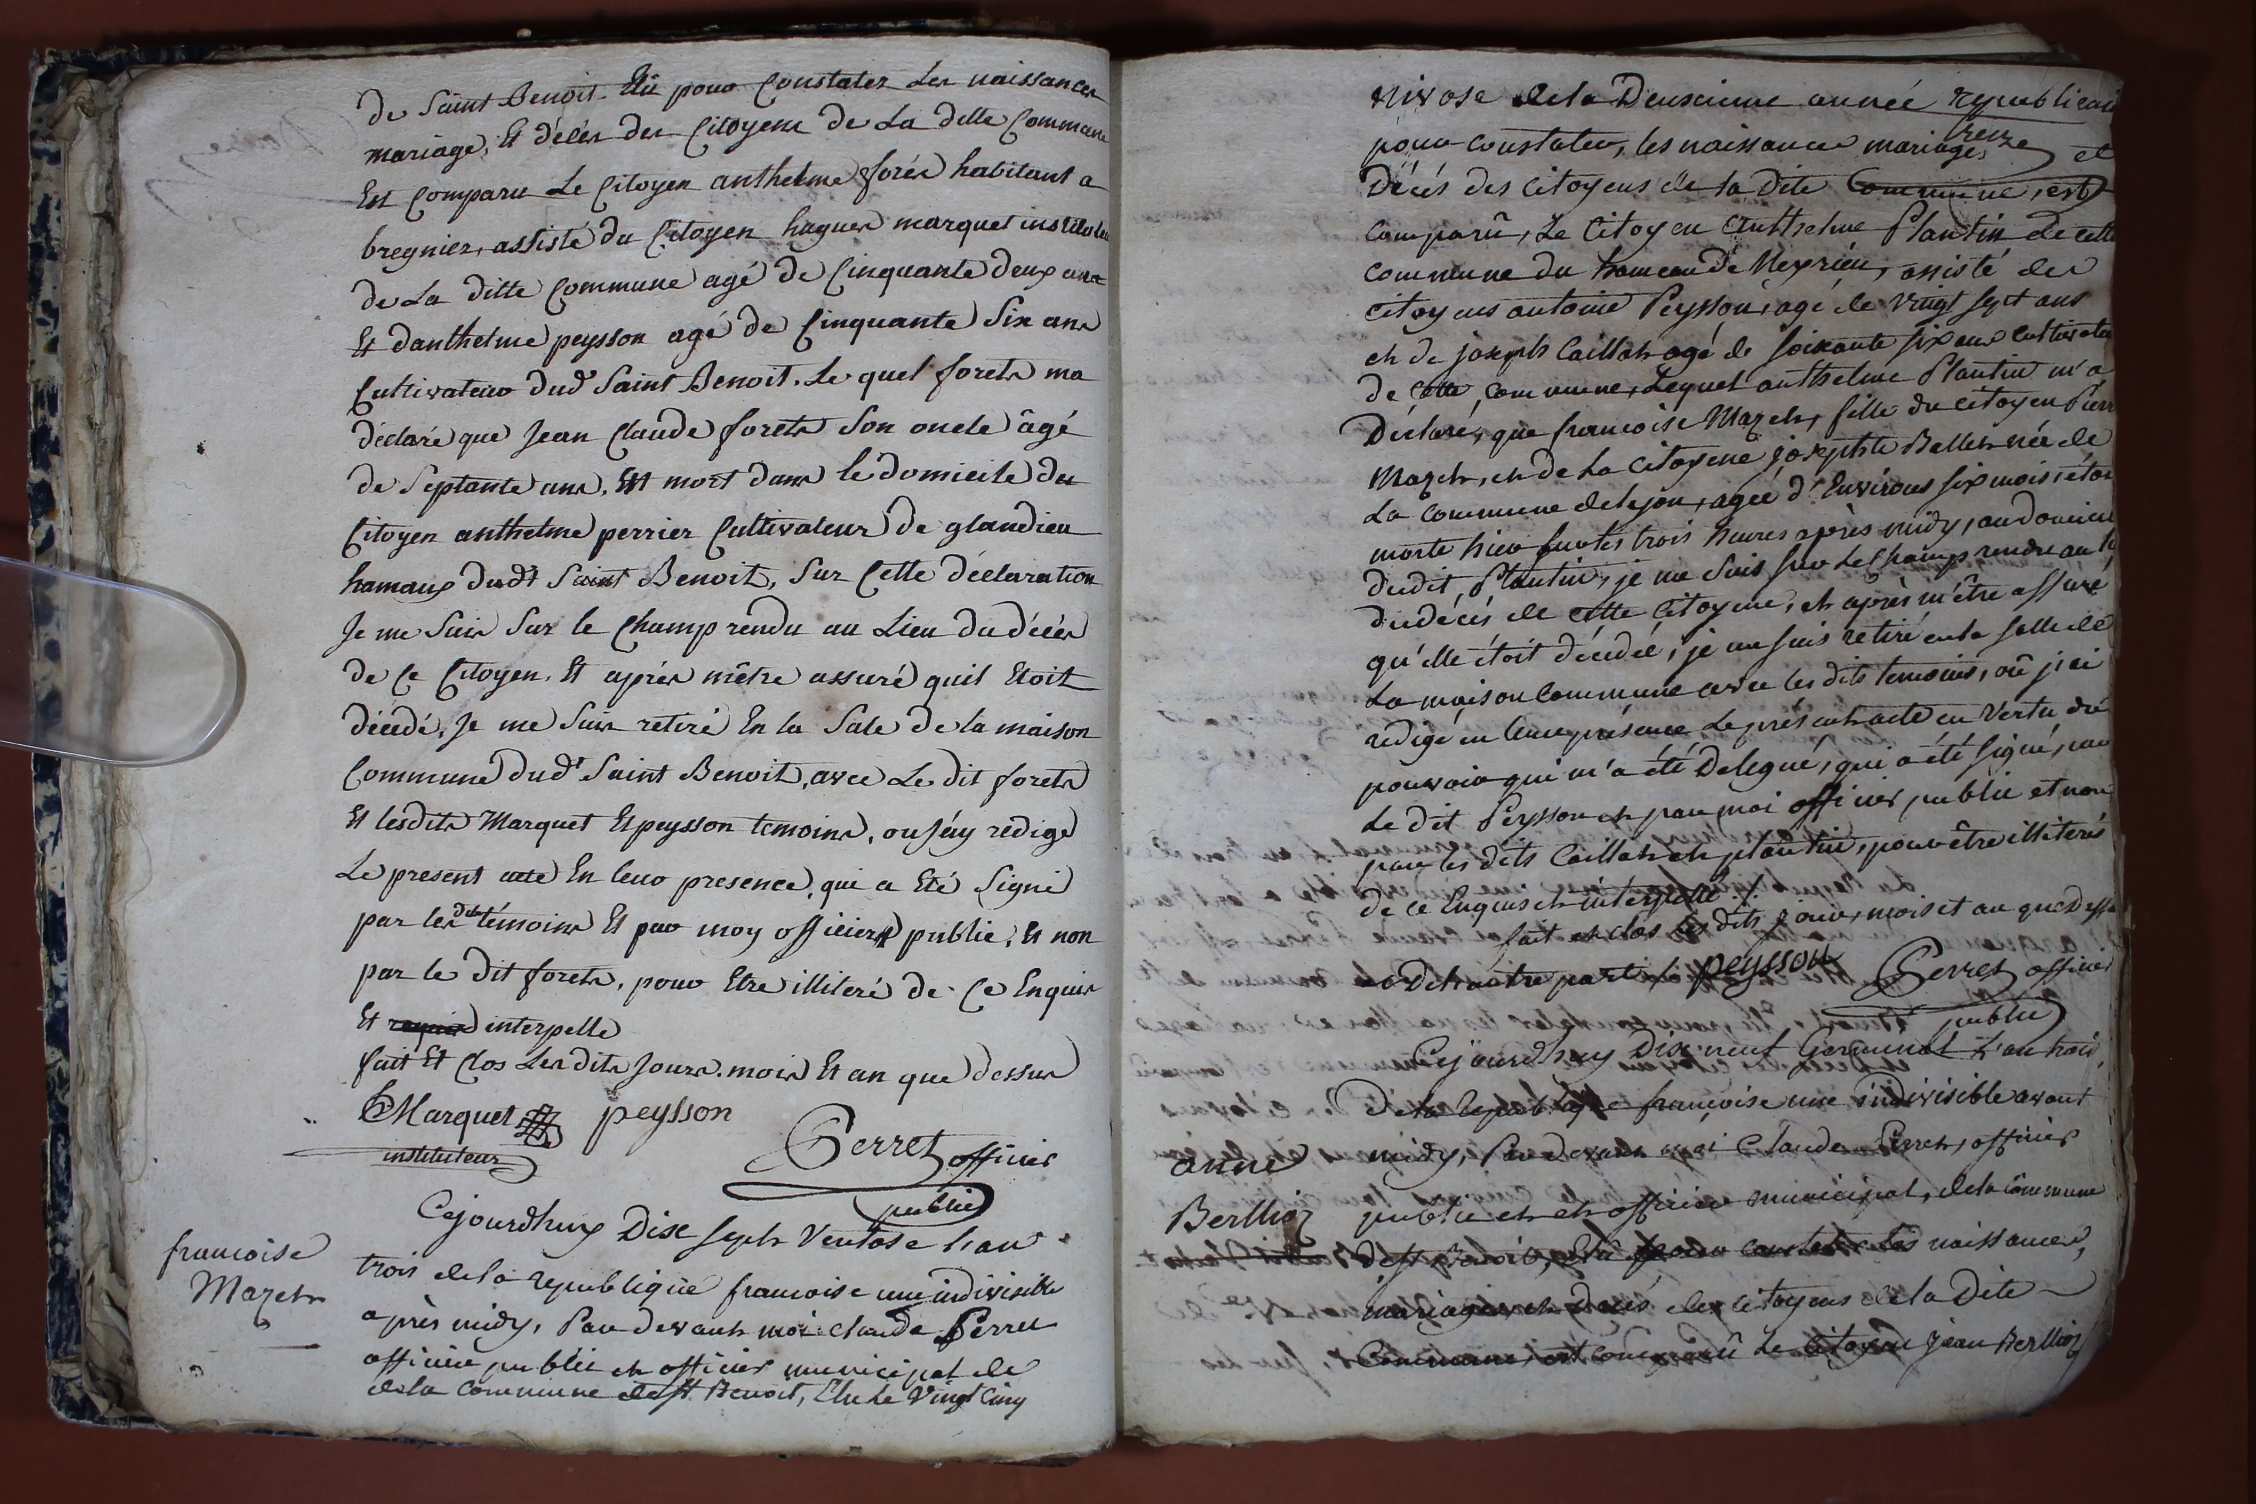 de Saint Benoit Elû pour Constater Les naissances
mariage, Et décès des Citoyens de La ditte Commune
Est Comparu Le Citoyen anthelme forés habitant a
bregnier, assisté du Citoyen hugues marquet instituteu
de La ditte Commune agé de Cinquante deux ans
Et danthelme peysson agé de Cinquante Six ans
Cultivateur dudt Saint Benoit. Le quel forets ma
déclaré que Jean Claude forets Son oncle âgé
de Septante ans, Est mort dans le domicile du
Citoyen anthelme perrier Cultivateur de glandieu
hamaux dudt Saint Benoit, Sur Cette déclaration
Je me Suis Sur le Champ rendu au Lieu du décès
de Ce Citoyen. Et après mêtre assuré quil Etoit
décédé, Je me Suis retiré En la Sale de la maison
Commune dudt Saint Benoit, avec Le dit forets
Et lesdits Marquet Et peysson temoins, ou J'ay redigé
Le present acte En leur presence, qui a Eté Signé
par les dits témoins Et par moy officier public, Et non
par le dit forets, pour Etre illiteré de Ce Enquis
Et interpelle
fait Et Clos Les dits Jours. mois Et an que dessus
Marquet peysson
instituteur
Perret officier
public
francoise
Mazet
Cejourdhuy Dix sept Ventose L'an
trois de la republique francoise une indivisible
après midy, Par devant moi Claude Perret
officier public et officier municipal de
de la Commune de st Benoit, Elu le Vingt Cinq
nivose de la Deuxieme année republicai
pour constater, les naissances mariages et
Décés des citoyens de la dite Commune, est
comparû, Le Citoyen Anthelme Plantin de cette
commune du hameau de Meyrieu, assisté des
citoyens antoine Peysson, agé de vingt sept ans
et de joseph Caillat agé de soixante six ans cultivateu
de cette commune, Lequel anthelme Plantin m'a
Déclaré, que francoise Mazet, fille du citoyen Pierr
Mazet, et de La Citoyene josephte Bellet née de
La commune de lejon, agée d'Environs six mois, étoi
morte hier sur les trois heures après midy, au domicil
dudit, Plantin, je me suis sur Le Champ rendu au li
du décés de cette Citoyene, et après m'être assuré
qu'elle étoit décédée, je me suis retiré en la salle de
La maison commune avec les dits temoins, où j'ai
rédigé en leur présence Le présent acte en Vertu du
pouvoir qui m'a été Delegué, qui a été signé, par
Le dit Peysson et par moi officier public et non
par les dits Caillat et plantin, pour être illiterés
de ce Enquis et interpellé ./.
fait et clos Les dits jour, mois et an que dessu
et de l'autre part ./. peysson Perret officier
public
Cejourdhuy Dix neuf Germinal L'an trois,
De la republique francoise une indivisible avant
anne
Berllioz
midy, Par devant moi Claude Perret, officier
public et officier municipal, de la commune
de st Benoit, Elû pour constater Les naissances,
mariages, et Décés des citoyens de la Dite
Commune, est comparû Le Citoyen Jean Berllioz